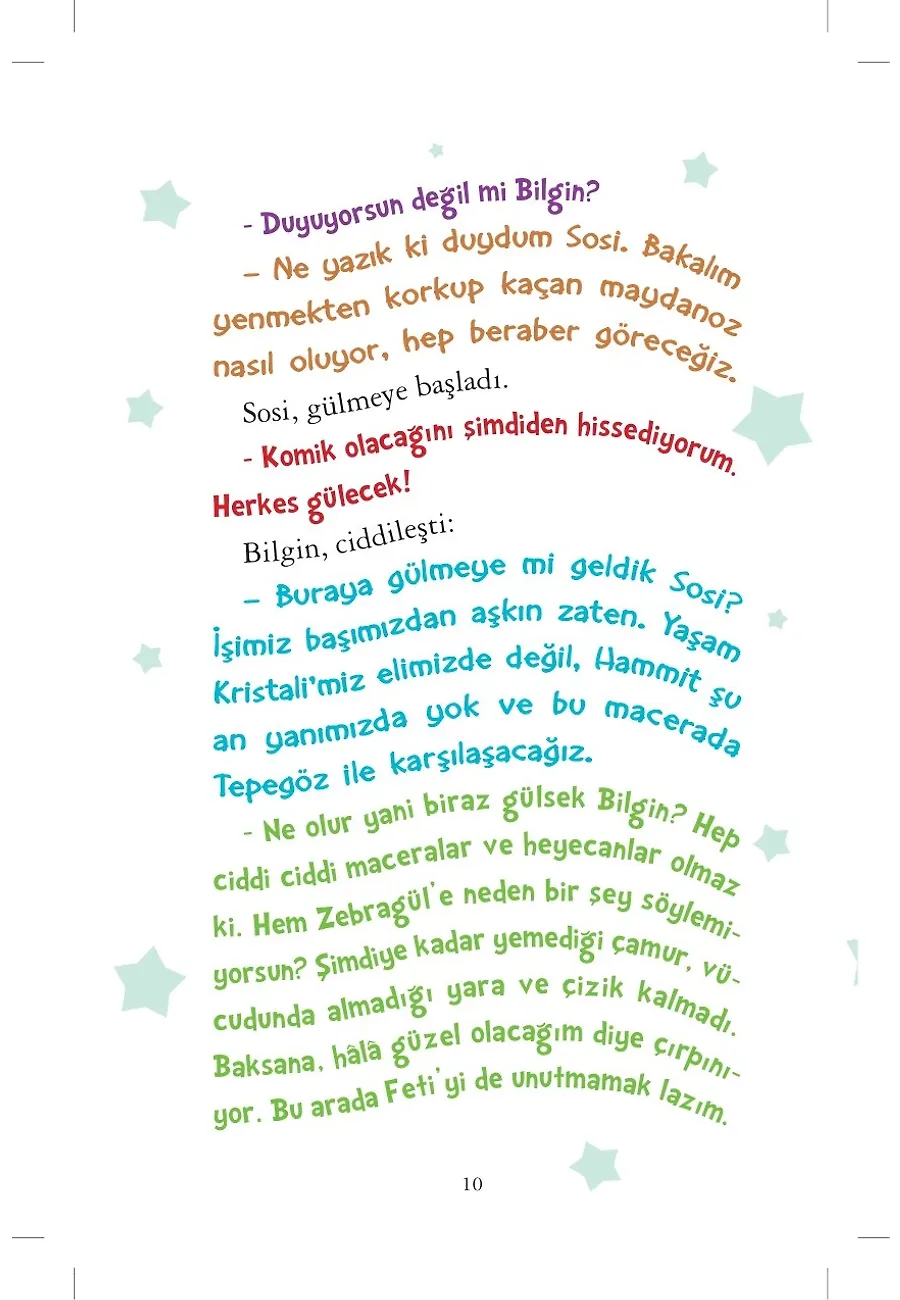 - Duyuyorsun değil mi Bilgin?
– Ne yazık ki duydum Sosi. Bakalım
yenmekten korkup kaçan maydanoz
nasıl oluyor, hep beraber göreceğiz.
Sosi, gülmeye başladı.
- Komik olacağını şimdiden hissediyorum.
Herkes gülecek!
Bilgin, ciddileşti:
– Buraya gülmeye mi geldik Sosi?
İşimiz başımızdan aşkın zaten. Yaşam
Kristali’miz elimizde değil, Hammit şu
an yanımızda yok ve bu macerada
Tepegöz ile karşılaşacağız.
- Ne olur yani biraz gülsek Bilgin? Hep
ciddi ciddi maceralar ve heyecanlar olmaz
ki. Hem Zebragül’e neden bir şey söylemi-
yorsun? Şimdiye kadar yemediği çamur, vü-
cudunda almadığı yara ve çizik kalmadı.
Baksana, hâlâ güzel olacağım diye çırpını-
yor. Bu arada Feti’yi de unutmamak lazım.
10